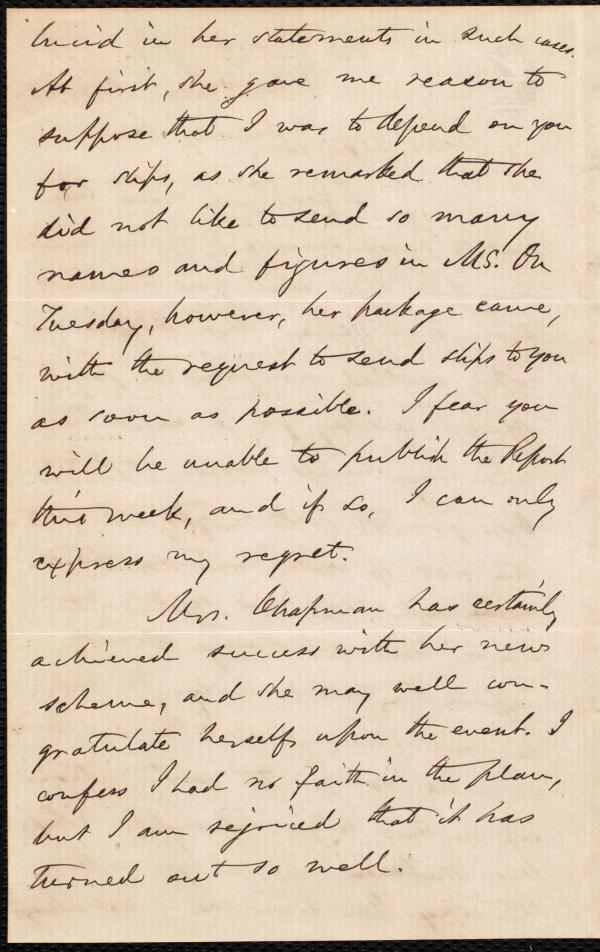 lucid in her statements in such cases.
At first, she gave me reason to
suppose that I was to depend on you
for slips, as she remarked that she
did not like to send so many
names and figures in MS. On
Tuesday, however, her package came,
with the request to send slips to you
as soon as possible. I fear you
will be unable to publish the Report
this week, and if so, I can only
express my regret.
Mrs. Chapman has certainly
achieved success with her new
scheme, and she may well con-
gratulate herself upon the event. I
confess I had no faith in the plan,
but I am rejoiced that it has
turned out so well.